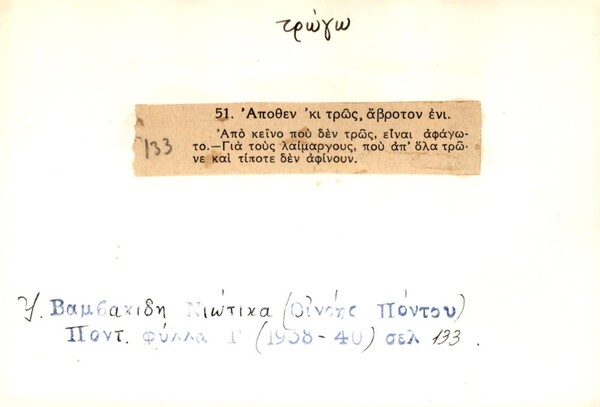 τρώγω
51. Ἀποθεν 'κι τρῶς, ἄβροτον ἐνι.
Ἀπὸ κεῖνο ποὺ δὲν τρῶς, εἶναι ἀφάγω-
το.—Γιὰ τοὺς λαίμαργους, ποὺ ἀπ' ὅλα τρῶ-
νε καὶ τίποτε δὲν ἀφίνουν.
133
Βαμβακιδη Νιώτικα (Οἰνόης Πόντου)
Ποντ. φύλλα Γ' (1938-40) σελ 133.